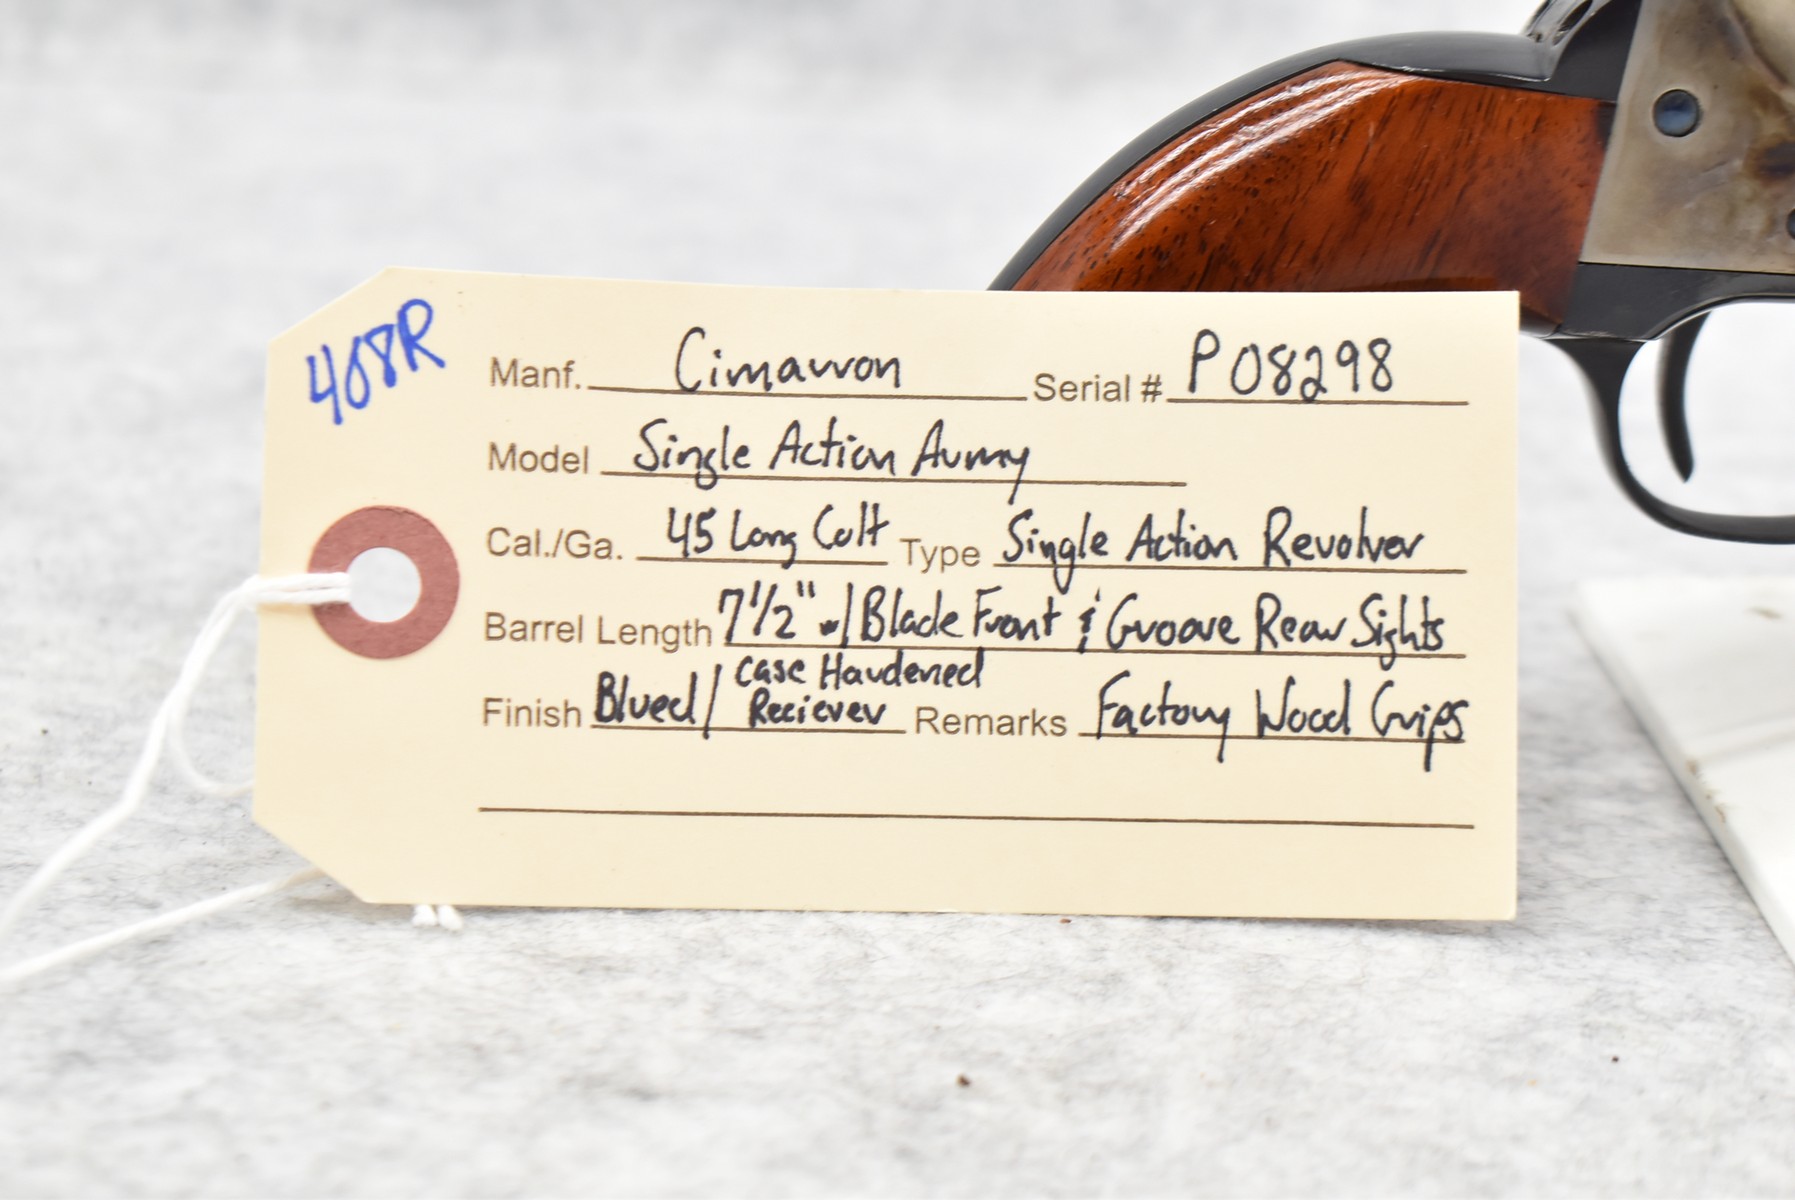 408R
Manf. Cimarron Serial # P08298
Model Single Action Army
Cal./Ga. 45 Long Colt Type Single Action Revolver
Barrel Length 7 1/2" w/ Blade Front & Groove Rear Sights
Finish Blued/ Case Hardened Reciever Remarks Factory Wood Grips